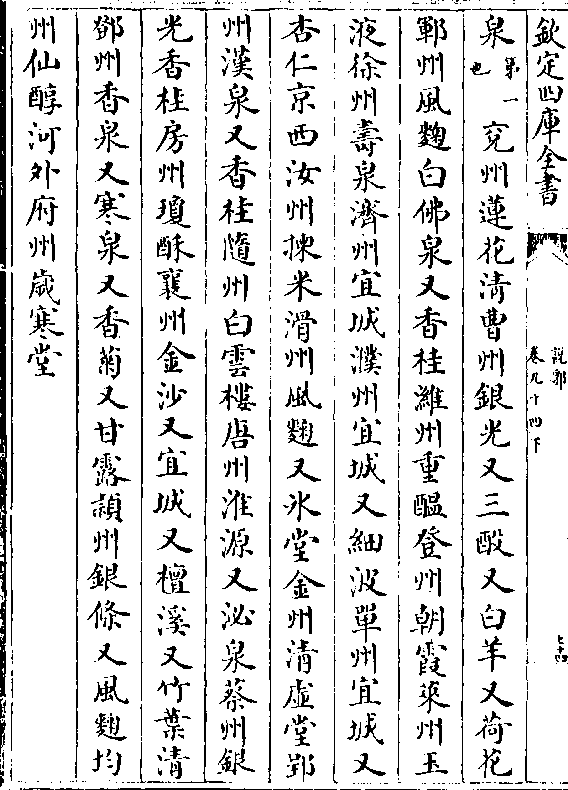 欽定四庫全書
說郛
卷九十四下
泉第一也兖州蓮花清曹州銀光又三酘又白羊又荷花
鄆州風麴白佛泉又香桂濰州重醖登州朝霞萊州玉
液徐州壽泉濟州宜城濮州宜城又細波單州宜城又
杏仁京西汝州揀米滑州風麴又氷堂金州清虛堂郢
州漢泉又香桂隨州白雲樓唐州淮源又泌泉蔡州銀
光香桂房州瓊酥襄州金沙又宜城又檀溪又竹葉清
鄧州香泉又寒泉又香菊又甘露頴州銀條又風麴均
州仙醇河外府州歲寒堂